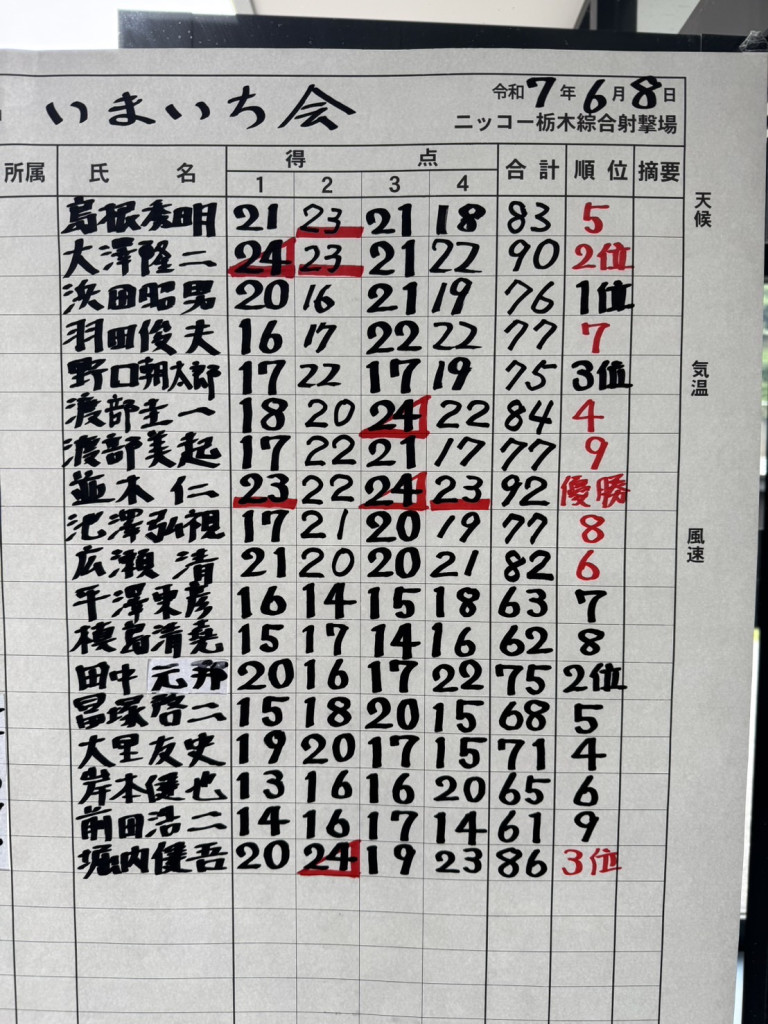 いまいち会
令和7年6月8日
ニッコー栃木綜合射撃場
所属 氏名 得点 合計 順位 摘要
1 2 3 4
島根秀明 21 23 21 18 83 5
大澤隆二 24 23 21 22 90 2位
浜田昭男 20 16 21 19 76 1位
羽田俊夫 16 17 22 22 77 7
野口朝太郎 17 22 17 19 75 3位
渡部圭一 18 20 24 22 84 4
渡部美起 17 22 21 17 77 9
並木仁 23 22 24 23 92 優勝
池澤弘視 17 21 20 19 77 8
広瀬清 21 20 20 21 82 6
平澤東彦 16 14 15 18 63 7
槙島清堯 15 17 14 16 62 8
田中元邦 20 16 17 22 75 2位
冨塚啓二 15 18 20 15 68 5
大里友史 19 20 17 15 71 4
岸本健也 13 16 16 20 65 6
前田浩二 14 16 17 14 61 9
堀内健吾 20 24 19 23 86 3位
天候
気温
風速